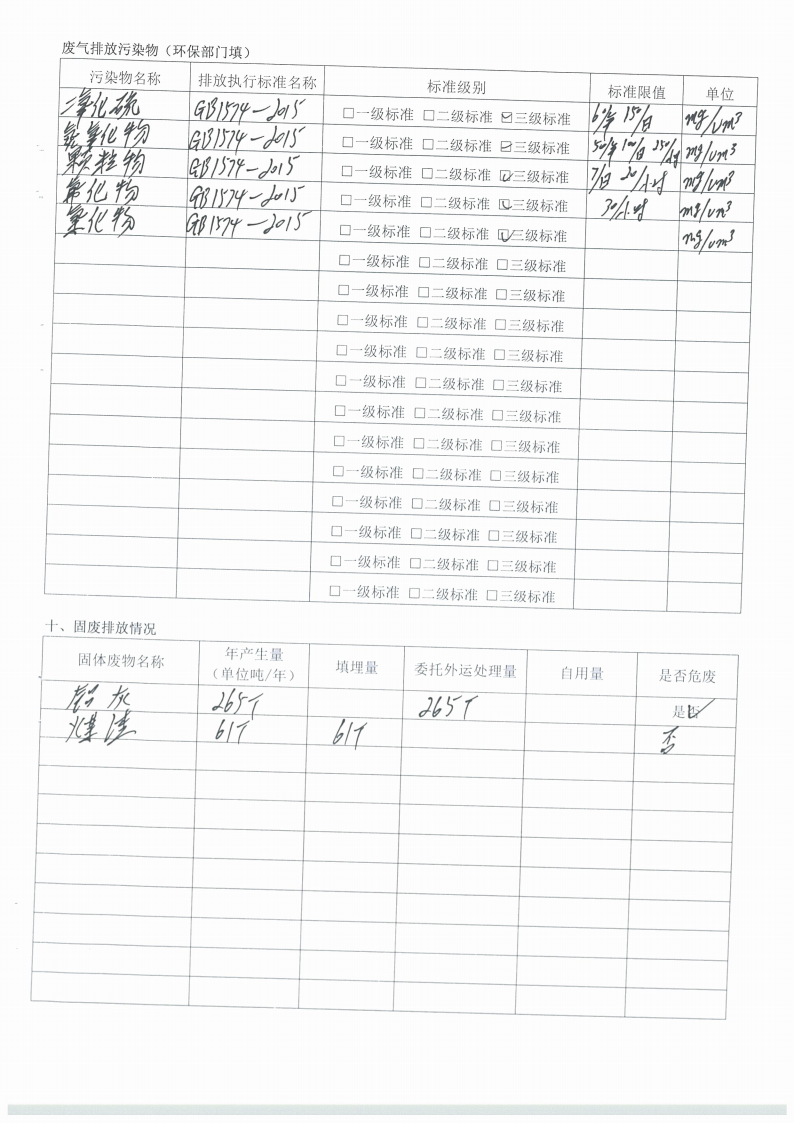 废气排放污染物（环保部门填）
污染物名称 排放执行标准名称 标准级别 标准限值 单位
二氧化硫 GB1574-2015 □一级标准 □二级标准 ☑三级标准 60/年 150/日 mg/um³
氮氧化物 GB1574-2015 □一级标准 □二级标准 ☑三级标准 50/年 100/日 250/时 mg/um³
颗粒物 GB1574-2015 □一级标准 □二级标准 ☑三级标准 7/日 20/小时 mg/um³
氟化物 GB1574-2015 □一级标准 □二级标准 ☑三级标准 30/小时 mg/um³
氯化物 GB1574-2015 □一级标准 □二级标准 ☑三级标准 mg/um³
□一级标准 □二级标准 □三级标准
□一级标准 □二级标准 □三级标准
□一级标准 □二级标准 □三级标准
□一级标准 □二级标准 □三级标准
□一级标准 □二级标准 □三级标准
□一级标准 □二级标准 □三级标准
□一级标准 □二级标准 □三级标准
□一级标准 □二级标准 □三级标准
□一级标准 □二级标准 □三级标准
□一级标准 □二级标准 □三级标准
□一级标准 □二级标准 □三级标准
□一级标准 □二级标准 □三级标准
十、固废排放情况
固体废物名称 年产生量 填埋量 委托外运处理量 自用量 是否危废
（单位吨/年）
铝灰 265T 265T 是否
煤渣 61T 61T 否